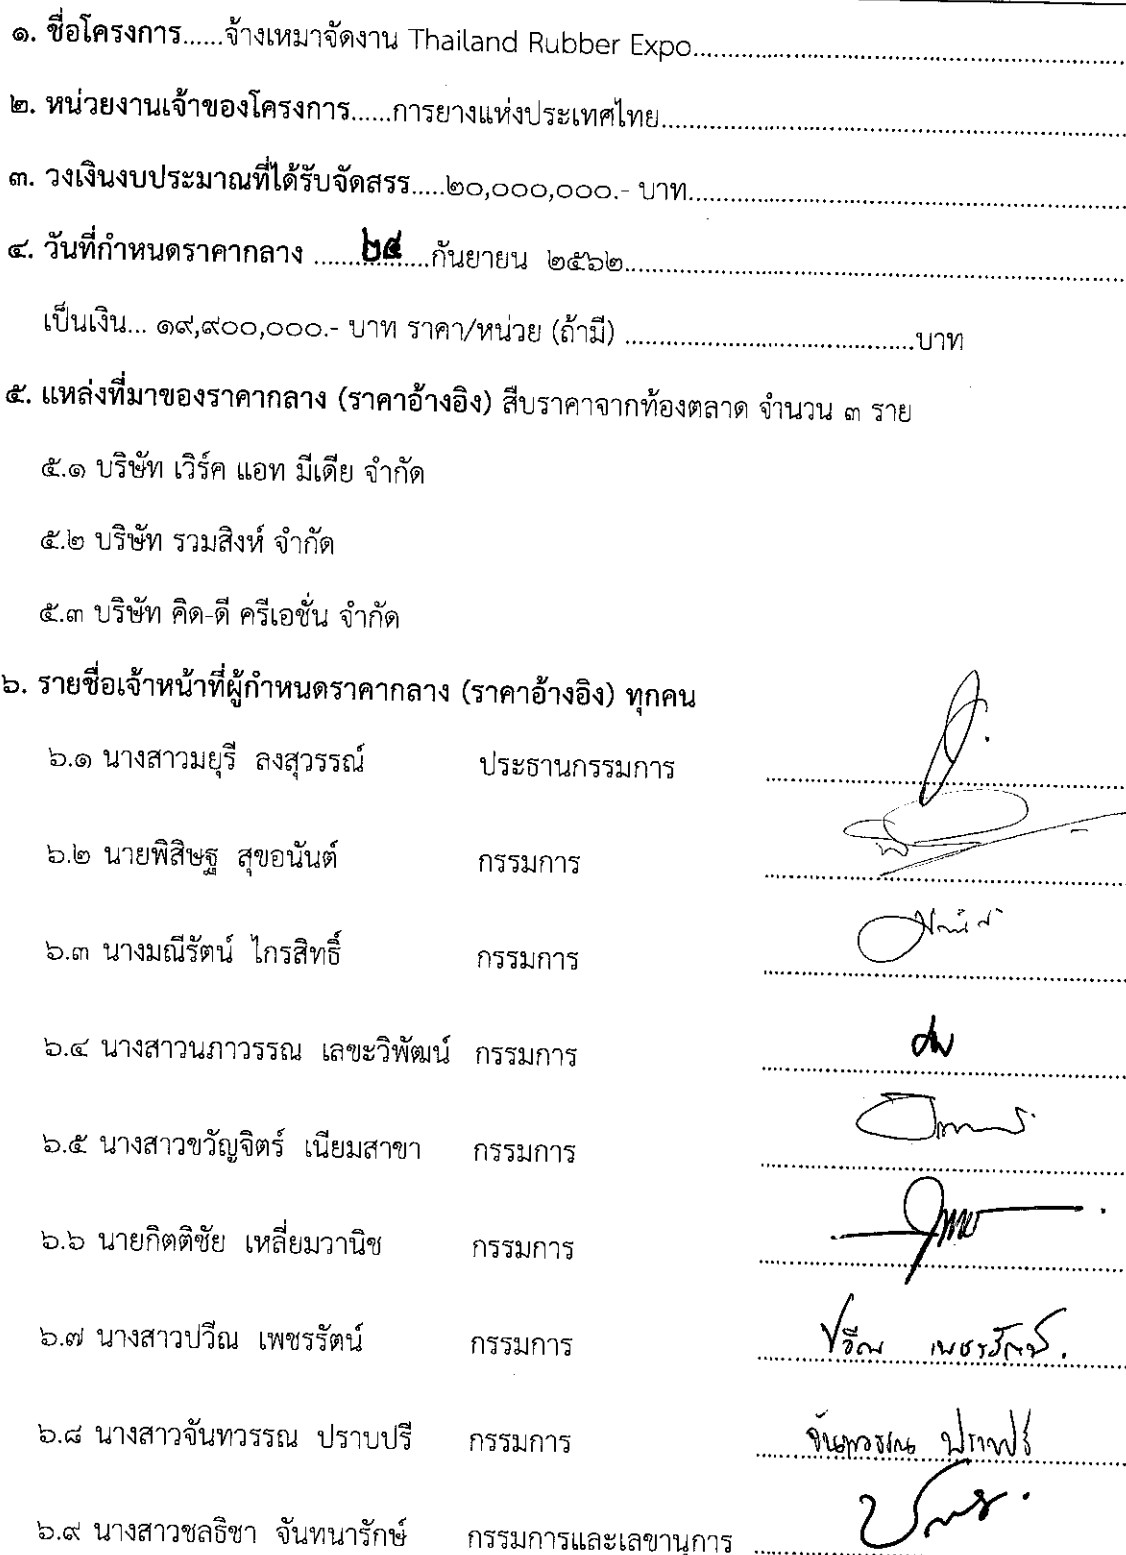 ๑. ชื่อโครงการ......จ้างเหมาจัดงาน Thailand Rubber Expo......
๒. หน่วยงานเจ้าของโครงการ......การยางแห่งประเทศไทย......
๓. วงเงินงบประมาณที่ได้รับจัดสรร.....๒๐,๐๐๐,๐๐๐.- บาท......
๔. วันที่กำหนดราคากลาง ......๒๔......กันยายน ๒๕๖๒......
เป็นเงิน... ๑๙,๙๐๐,๐๐๐.- บาท ราคา/หน่วย (ถ้ามี) ......บาท
๕. แหล่งที่มาของราคากลาง (ราคาอ้างอิง) สืบราคาจากท้องตลาด จำนวน ๓ ราย
๕.๑ บริษัท เวิร์ค แอท มีเดีย จำกัด
๕.๒ บริษัท รวมสิงห์ จำกัด
๕.๓ บริษัท คิด-ดี ครีเอชั่น จำกัด
๖. รายชื่อเจ้าหน้าที่ผู้กำหนดราคากลาง (ราคาอ้างอิง) ทุกคน
๖.๑ นางสาวมยุรี ลงสุวรรณ์ ประธานกรรมการ
๖.๒ นายพิสิษฐ สุขอนันต์ กรรมการ
๖.๓ นางมณีรัตน์ ไกรสิทธิ์ กรรมการ
๖.๔ นางสาวนภาวรรณ เลขะวิพัฒน์ กรรมการ
๖.๕ นางสาวขวัญจิตร์ เนียมสาขา กรรมการ
๖.๖ นายกิตติชัย เหลี่ยมวานิช กรรมการ
๖.๗ นางสาวปวีณ เพชรรัตน์ กรรมการ ปวีณ เพชรรัตน์.
๖.๘ นางสาวจันทวรรณ ปราบปรี กรรมการ จันทวรรณ ปราบปรี
๖.๙ นางสาวชลธิชา จันทนารักษ์ กรรมการและเลขานุการ